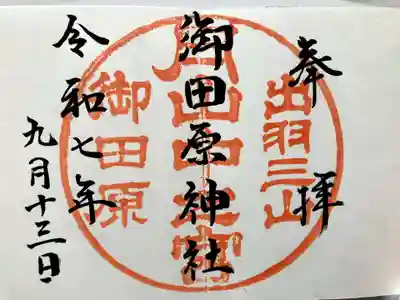 奉拝
出羽三山
御田原神社
月山中之宮
御田原
令和七年
九月十三日